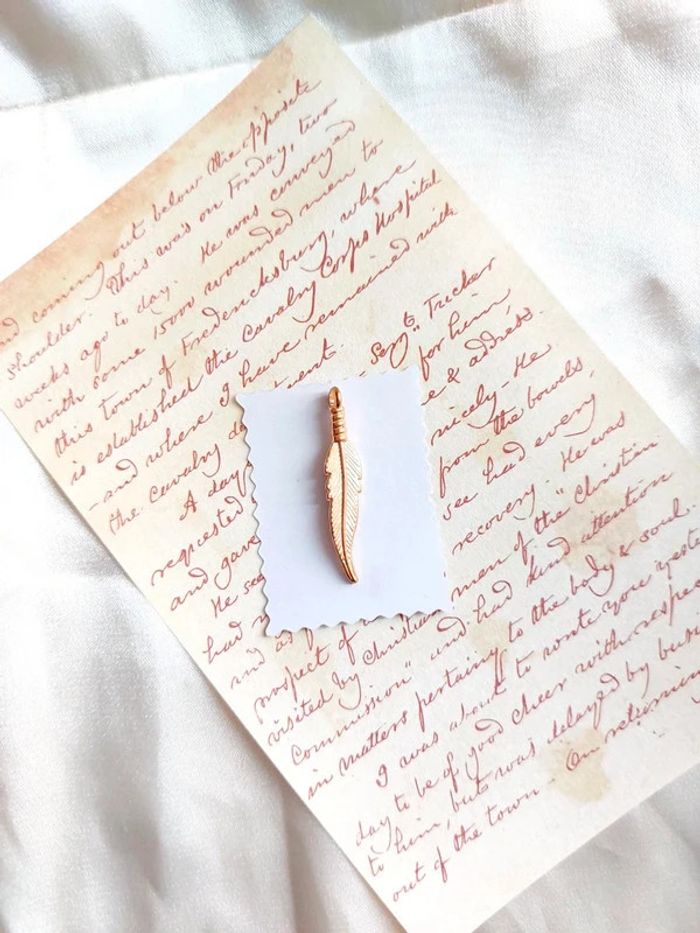 nd coming out below the opposite
shoulder. This was on Friday, two
weeks ago to day. He was conveyed
with some 1500 wounded men to
this town of Fredericksburg, where
is established the Cavalry Corps Hospital
- and where I have remained with
the cavalry de tment.
A day Sergt Tucker
requested for him
and gave e & address.
He see nicely - He
had from the bowels.
and as f see had every
prospect of recovery. He was
visited by Christian men of the "Christian
Commission" and had kind attention
in matters pertaining to the body & soul.
I was about to write you yeste
day to be of good cheer with respe
to him, but was delayed by busi
out of the town - On returnin